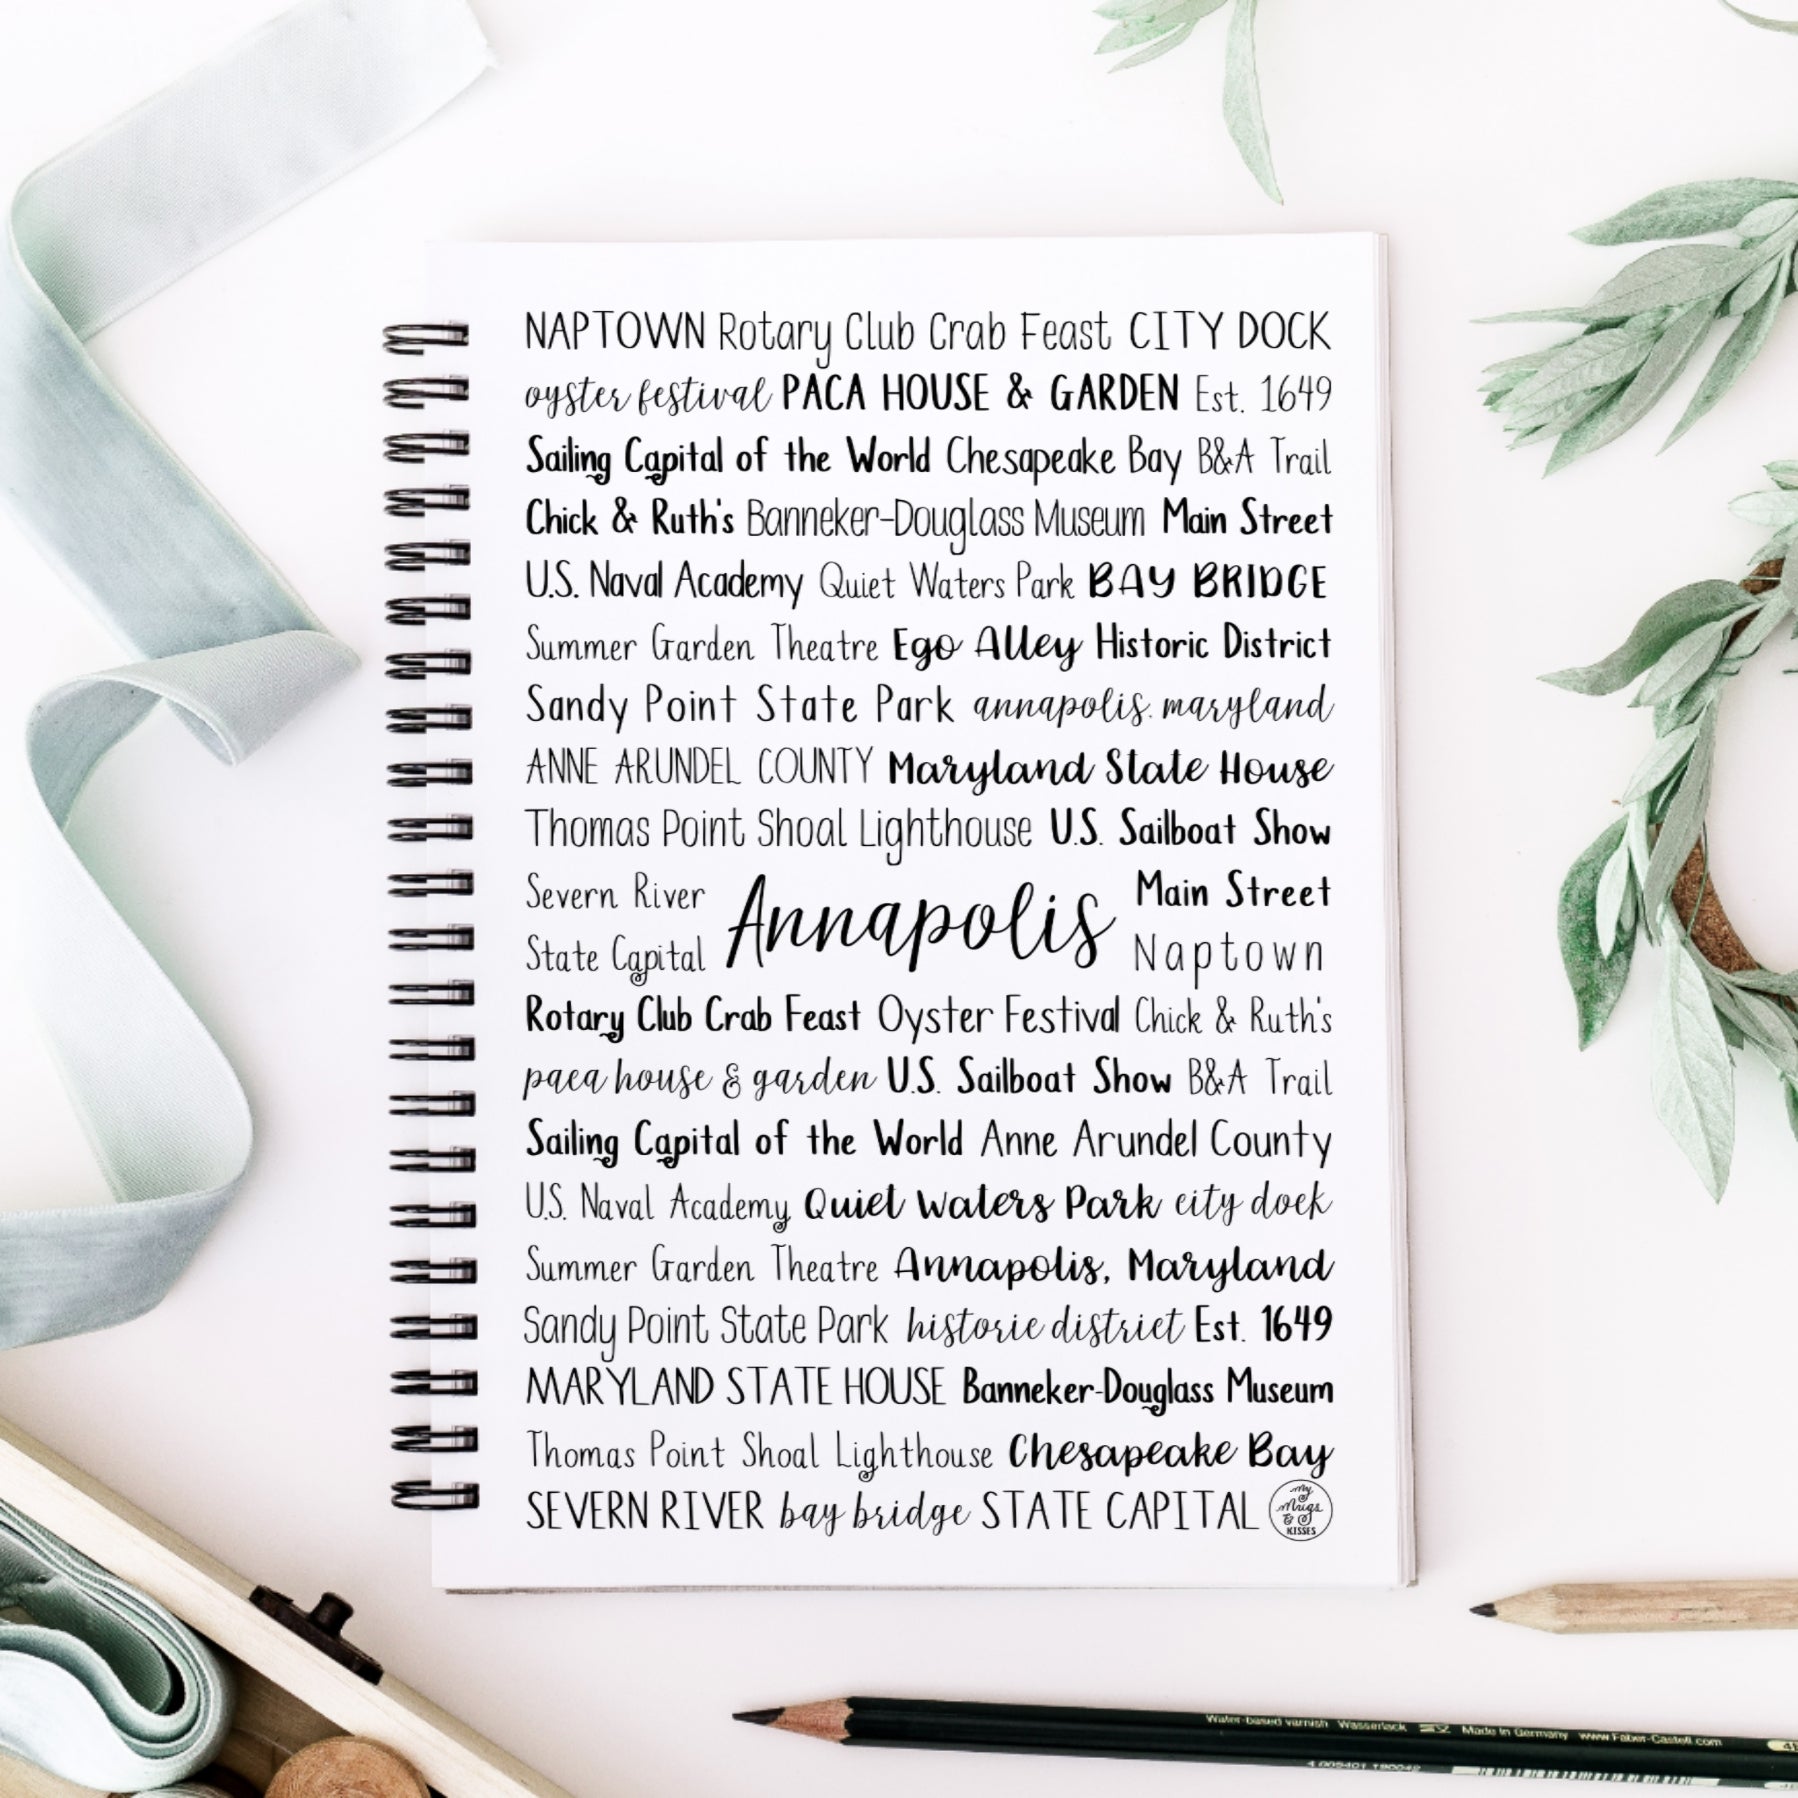 NAPTOWN Rotary Club Crab Feast CITY DOCK
oyster festival PACA HOUSE & GARDEN Est. 1649
Sailing Capital of the World Chesapeake Bay B&A Trail
Chick & Ruth's Banneker-Douglass Museum Main Street
U.S. Naval Academy Quiet Waters Park BAY BRIDGE
Summer Garden Theatre Ego Alley Historic District
Sandy Point State Park annapolis. maryland
ANNE ARUNDEL COUNTY Maryland State House
Thomas Point Shoal Lighthouse U.S. Sailboat Show
Severn River
State Capital
Annapolis
Main Street
Naptown
Rotary Club Crab Feast Oyster Festival Chick & Ruth's
paca house & garden U.S. Sailboat Show B&A Trail
Sailing Capital of the World Anne Arundel County
U.S. Naval Academy Quiet Waters Park city dock
Summer Garden Theatre Annapolis, Maryland
Sandy Point State Park historic district Est. 1649
MARYLAND STATE HOUSE Banneker-Douglass Museum
Thomas Point Shoal Lighthouse Chesapeake Bay
SEVERN RIVER bay bridge STATE CAPITAL
my
Mugs
&
KISSES
Water-based varnish Wasserlack Made in Germany www.Faber-Castell.com